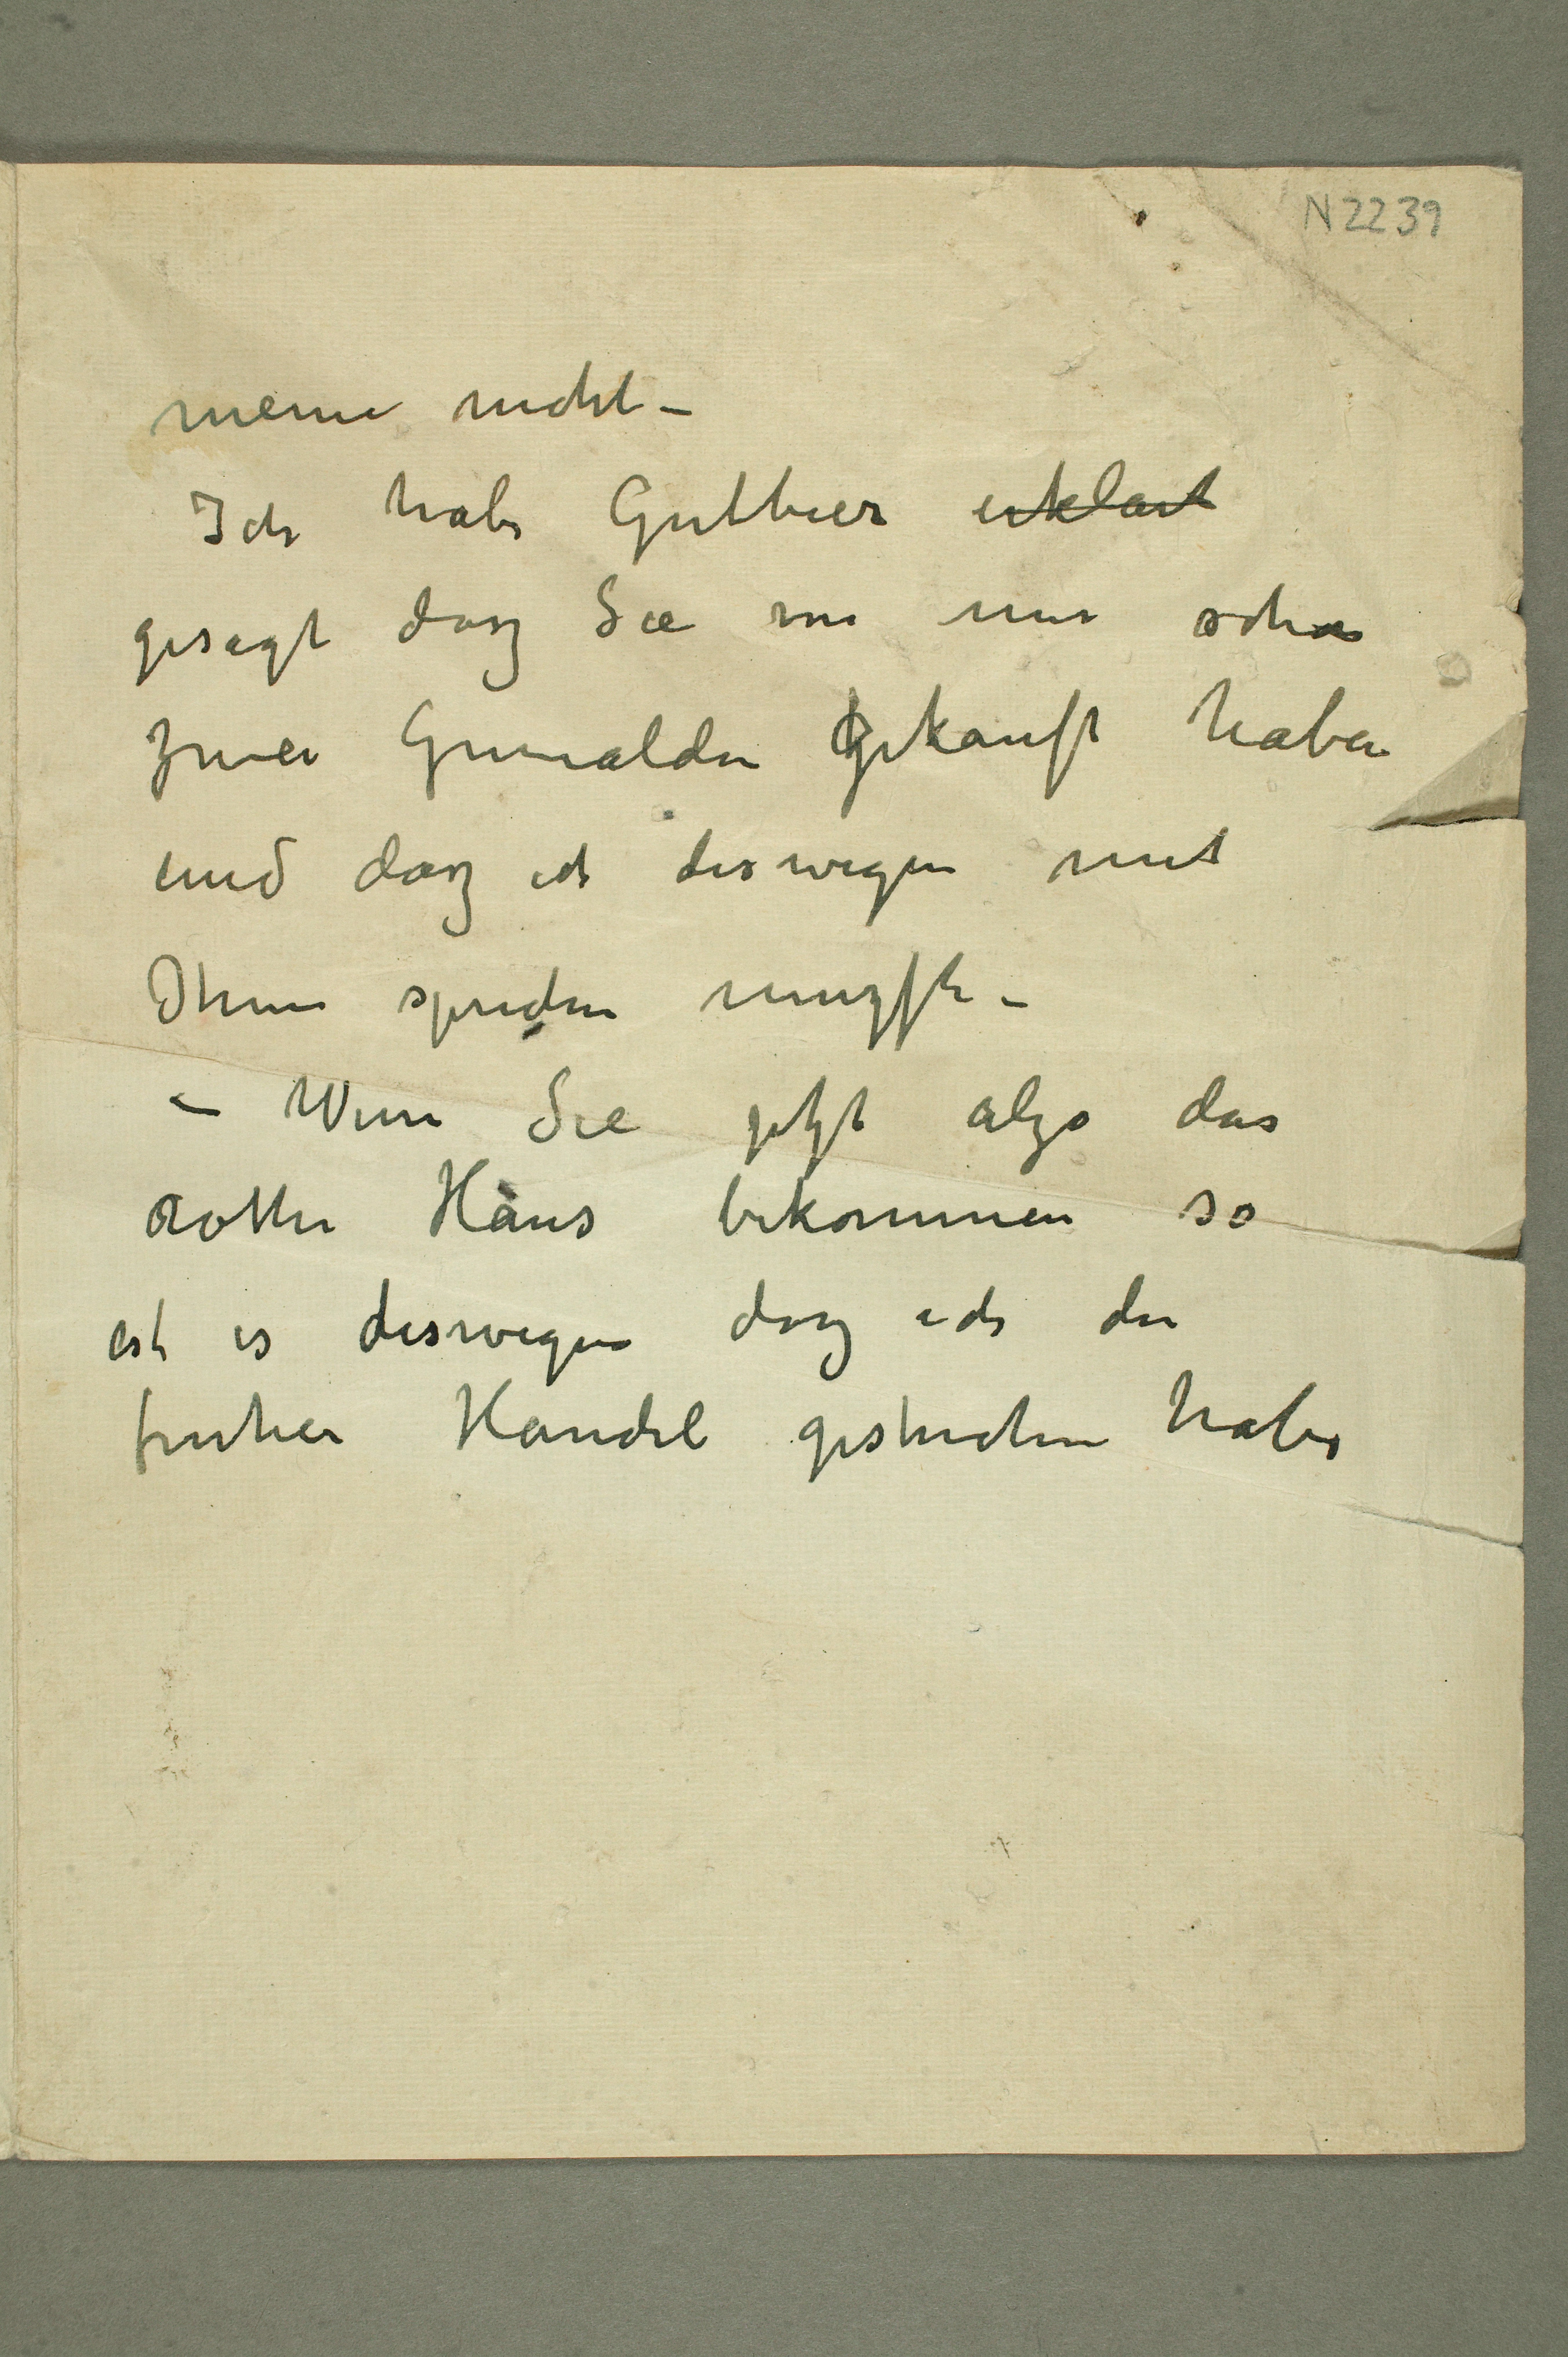 N 2239
meine nicht –
Ich habe Gutbier erklart
gesagt dasz Sie von mir schon
zwei Gemälden gekauft haben
und dasz ich deswegen mit
Ihnen sprechen muszste –
– Wenn Sie jetzt alzo das
rothe Haus bekommen so
ist es deswegen dasz ich den
fruher Handel gestrichen habe